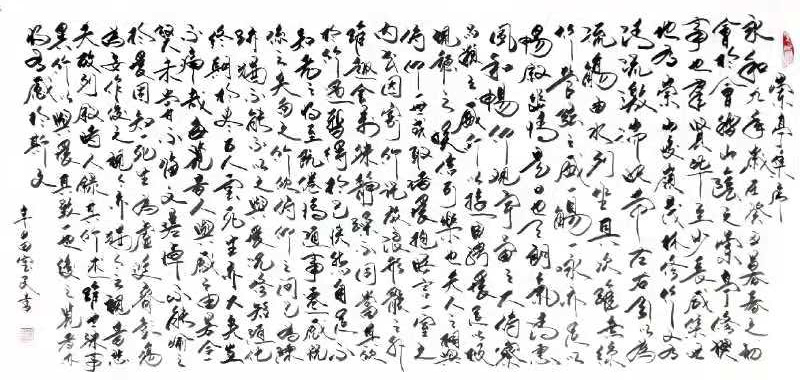 蘭亭集序
永和九年歲在癸丑暮春之初
會於會稽山陰之蘭亭修禊
事也羣賢畢至少長咸集此
地有崇山峻嶺茂林修竹又有
清流激湍映帶左右引以為
流觴曲水列坐其次雖無絲
竹管弦之盛一觴一詠亦足以
暢敘幽情是日也天朗氣清惠
風和暢仰觀宇宙之大俯察
品類之盛所以遊目騁懷足以極
視聽之娛信可樂也夫人之相與
俯仰一世或取諸懷抱晤言一室之
內或因寄所託放浪形骸之外
雖趣舍萬殊靜躁不同當其欣
於所遇暫得於己快然自足不
知老之將至既倦情隨事遷感慨
係之矣向之所欣俯仰之間已為陳
跡猶不能不以之興懷況修短隨化
終期於盡古人云死生亦大矣豈
不痛哉每覽昔人興感之由若合
一契未嘗不臨文嗟悼不能喻之
於懷固知一死生為虛誕齊彭殤
為妄作後之視今亦猶今之視昔悲
夫故列敘時人錄其所述雖世殊事
異所以興懷其致一也後之覽者亦
將有感於斯文